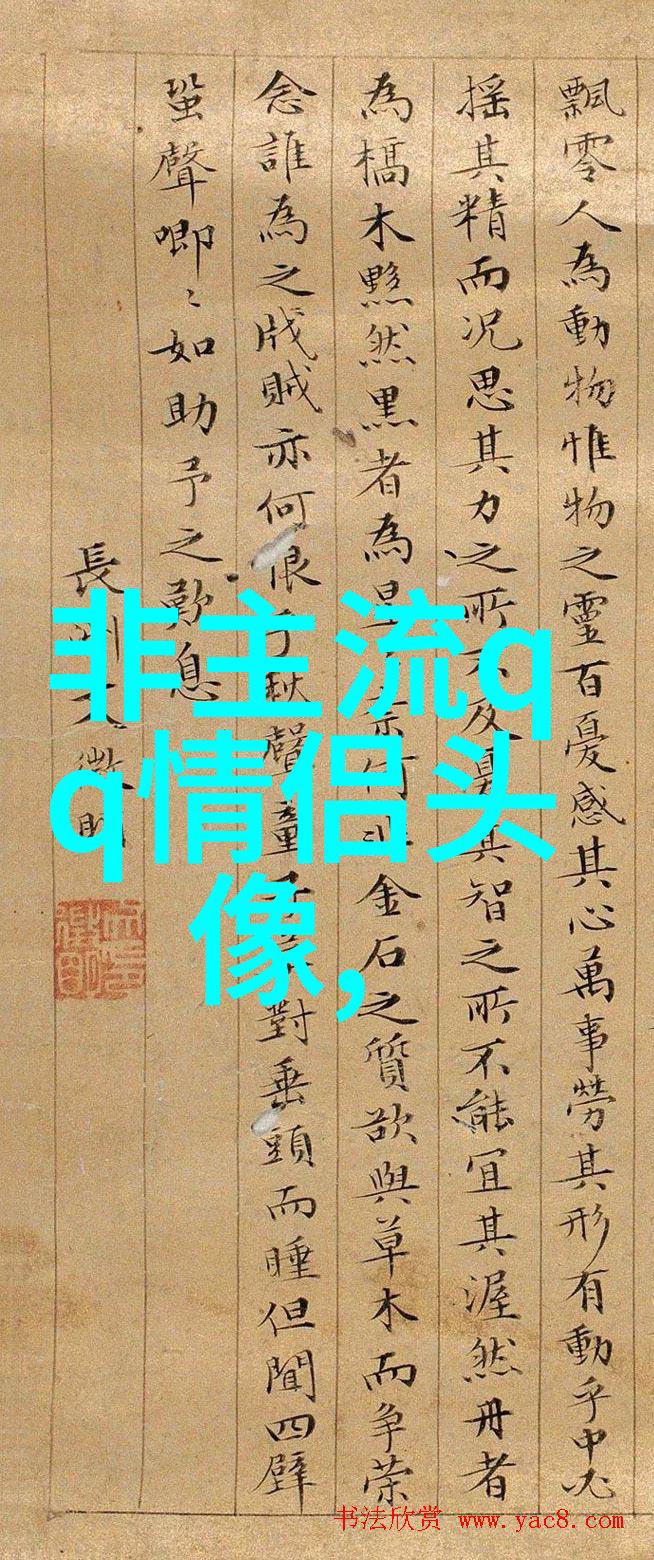 飄零人為動物惟物之靈百憂感其心萬事勞其形有動乎中必
搖其精而況思其力之所不及憂其智之所不能宜其渥然丹者
為槁木黟然黒者為星奈何非金石之質欲與草木而争荣
念誰為之戕賊亦何恨于秋聲童子對垂頭而睡但聞四壁
蛩聲唧〻如助予之歎息
長洲文徵明
非主流q
q情侣头
像,
书法欣赏 www.yac8.com